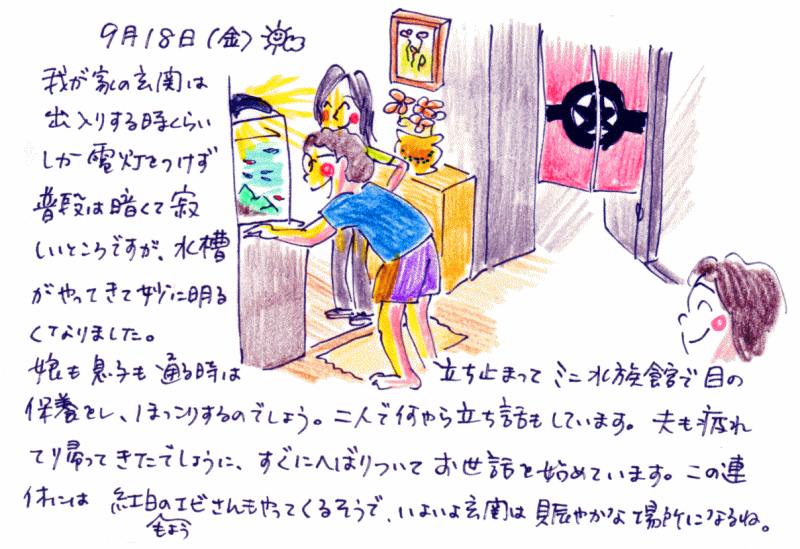 9月18日(金)
我が家の玄関は
出入りする時くらい
しか電灯をつけず
普段は暗くて寂
しいところですが、水槽
がやってきて妙に明る
くなりました。
娘も息子も通る時は 立ち止まって ミニ水族館で目の
保養をし、ほっこりするのでしょう。二人で何やら立ち話もしています。夫も疲れ
てり帰ってきたでしょうに、すぐにへばりついてお世話を始めています。この連
休には 紅白のエビさんもやってくるそうで、いよいよ玄関は賑やかな場所になるね。
もよう